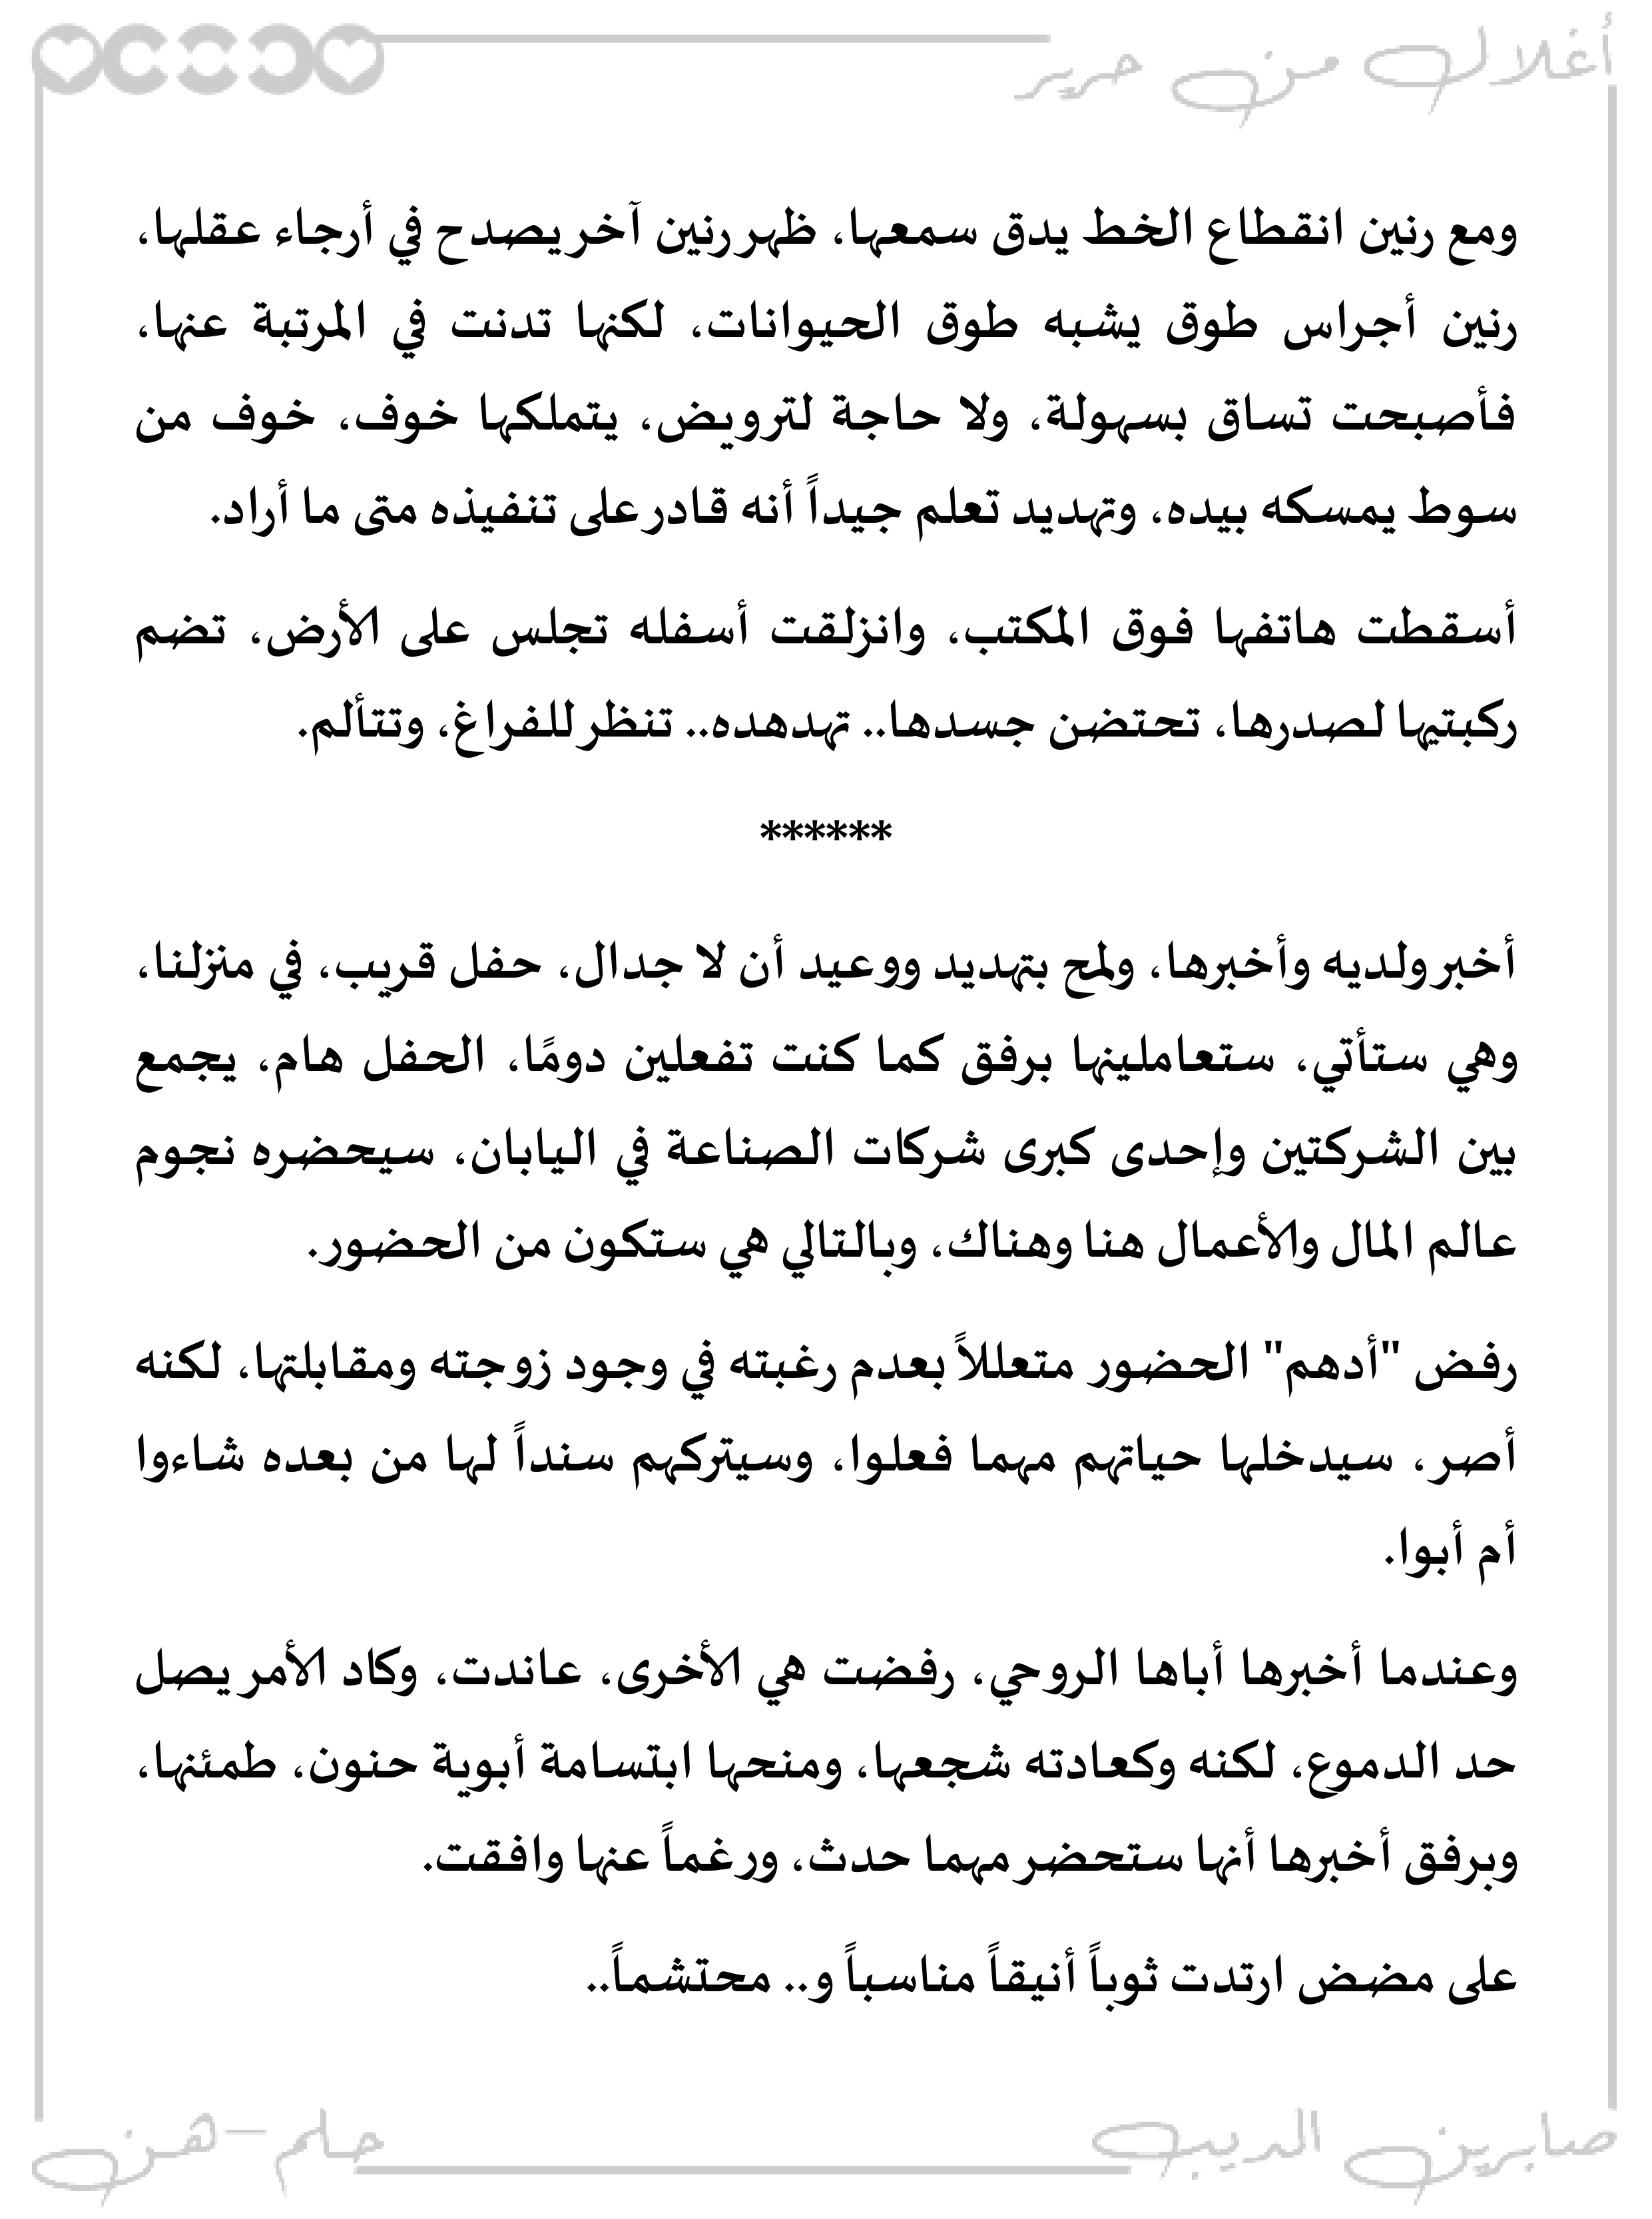 أغلال من حرير
ومع رنين انقطاع الخط يدق سمعها، ظهر رنين آخر يصدح في أرجاء عقلها،
رنين أجراس طوق يشبه طوق الحيوانات، لكنها تدنت في المرتبة عنها،
فأصبحت تساق بسهولة، ولا حاجة لترويض، يتملكها خوف، خوف من
سوط يمسكه بيده، وتهديد تعلم جيداً أنه قادر على تنفيذه متى ما أراد.
أسقطت هاتفها فوق المكتب، وانزلقت أسفله تجلس على الأرض، تضم
ركبتيها لصدرها، تحتضن جسدها.. تهدهده.. تنظر للفراغ، وتتألم.
******
أخبر ولديه وأخبرها، ولمح بتهديد ووعيد أن لا جدال، حفل قريب، في منزلنا،
وهي ستأتي، ستعاملينها برفق كما كنت تفعلين دومًا، الحفل هام، يجمع
بين الشركتين وإحدى كبرى شركات الصناعة في اليابان، سيحضره نجوم
عالم المال والأعمال هنا وهناك، وبالتالي هي ستكون من الحضور.
رفض "أدهم" الحضور متعللاً بعدم رغبته في وجود زوجته ومقابلتها، لكنه
أصر، سيدخلها حياتهم مهما فعلوا، وسيتركهم سنداً لها من بعده شاءوا
أم أبوا.
وعندما أخبرها أباها الروحي، رفضت هي الأخرى، عاندت، وكاد الأمر يصل
حد الدموع، لكنه وكعادته شجعها، ومنحها ابتسامة أبوية حنون، طمئنها،
وبرفق أخبرها أنها ستحضر مهما حدث، ورغماً عنها وافقت.
على مضض ارتدت ثوباً أنيقاً مناسباً و.. محتشماً..
صابرين الديب
حلم-هن